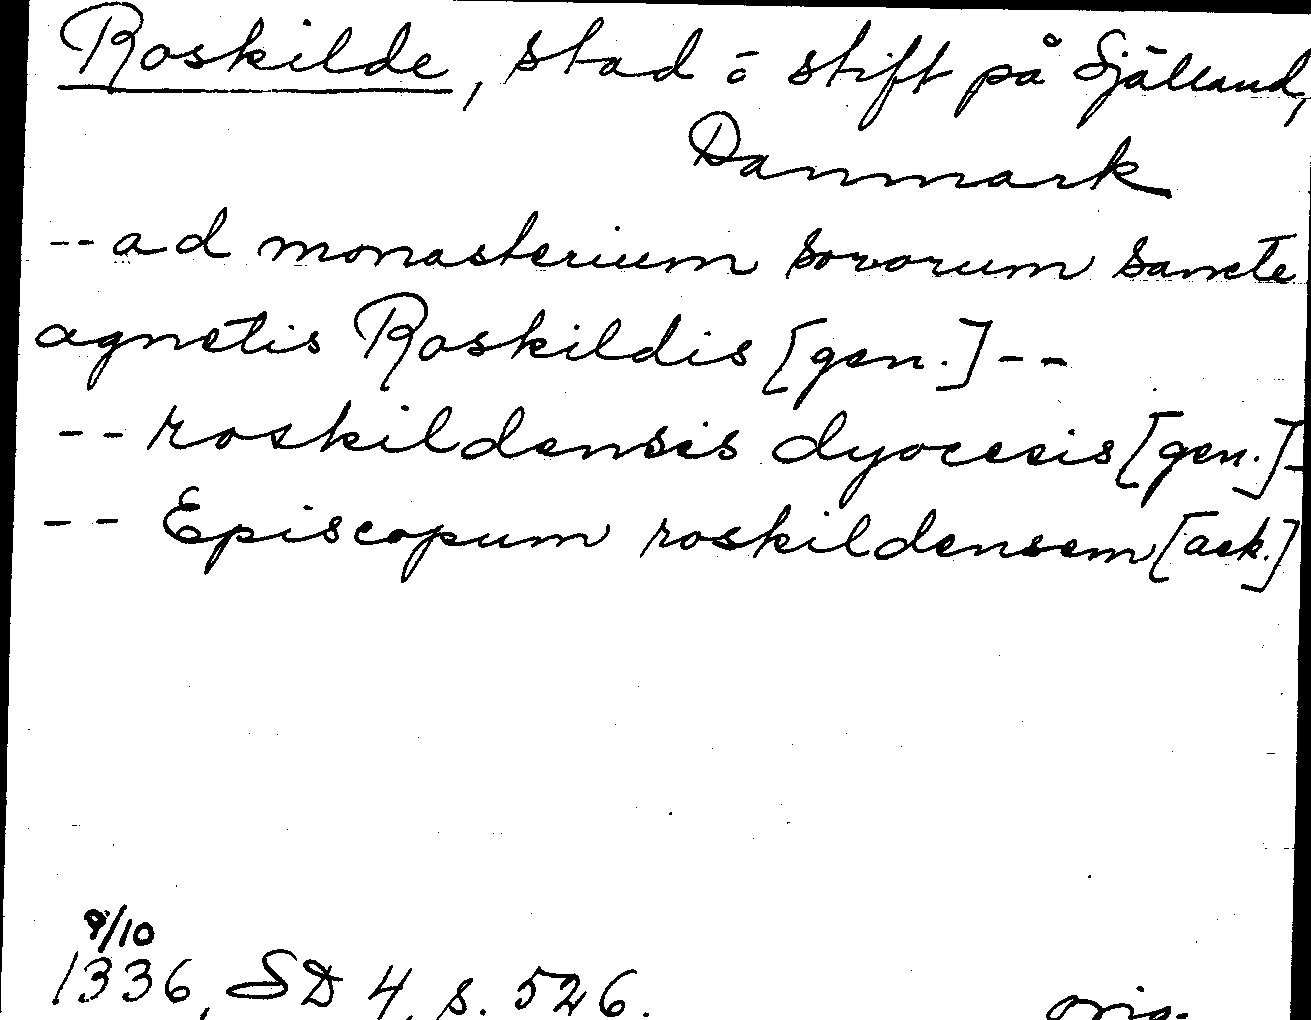 Roskilde, stad o stift på Själland,
Danmark
-- ad monasterium sororum sancte
agnetis Roskildis [gen.] --
-- roskildensis dyocesis [gen.] -
-- Episcopum roskildensem [ack.]
9/10
1336, SD 4, s. 526.
orig.